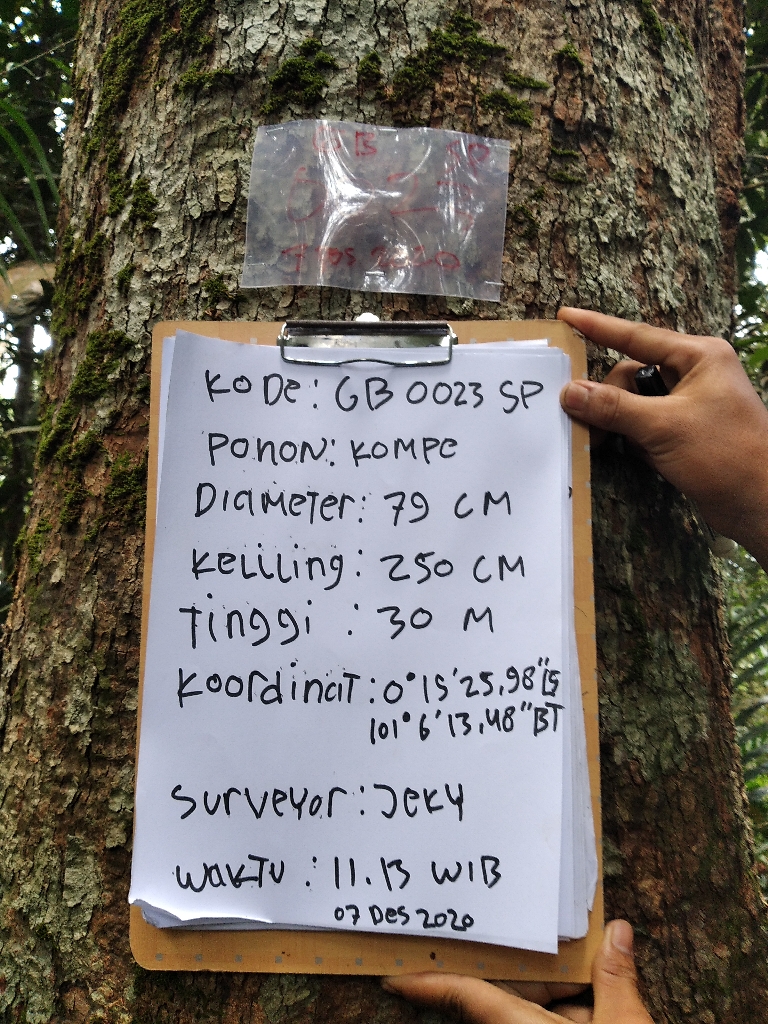 GB SP
7 Des 2020
Kode: GB 0023 SP
Pohon: Kompe
Diameter: 79 CM
Keliling: 250 CM
Tinggi : 30 M
Koordinat: 0°15'25,98"LS
101°6'13,48"BT
Surveyor: Jeky
Waktu : 11.13 WIB
07 Des 2020